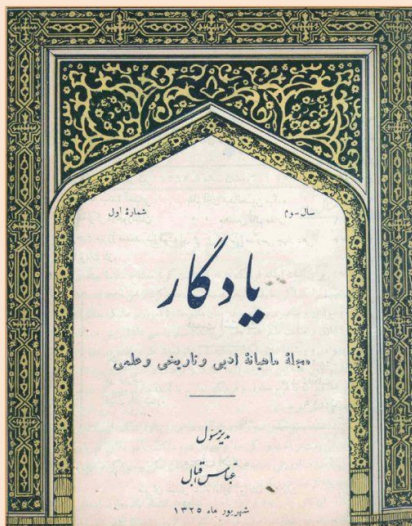 سال سوم شمارهٔ اول
یادگار
مجلهٔ ماهیانهٔ ادبی و تاریخی و علمی
مدیر مسئول
عباس اقبال
شهریور ماه ۱۳۲۵